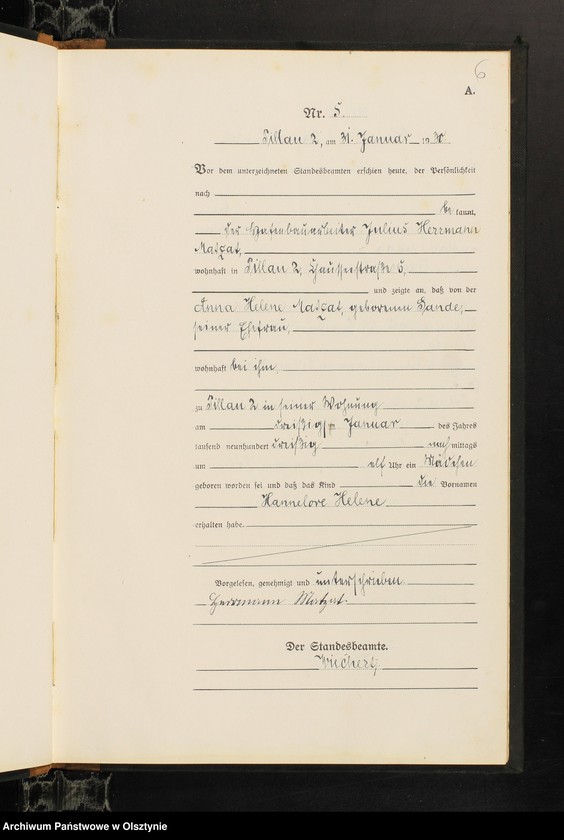 6
A.
Nr. 5.
Pillau 2, am 31. Januar 1930.
Vor dem unterzeichneten Standesbeamten erschien heute, der Persönlichkeit
nach
be kannt,
der Hafenbauarbeiter Julius Herrmann
Matzat,
wohnhaft in Pillau 2, Chausseestraße 5,
und zeigte an, daß von der
Anna Helene Matzat, geborenen Hande,
seiner Ehefrau,
wohnhaft bei ihm,
zu Pillau 2 in seiner Wohnung
am dreißigsten Januar des Jahres
tausend neunhundert dreißig nach mittags
um elf Uhr ein Mädchen
geboren worden sei und daß das Kind die Vornamen
Hannelore Helene
erhalten habe.
Vorgelesen, genehmigt und unterschrieben
Herrmann Matzat.
Der Standesbeamte.
Wichert
Archiwum Państwowe w Olsztynie